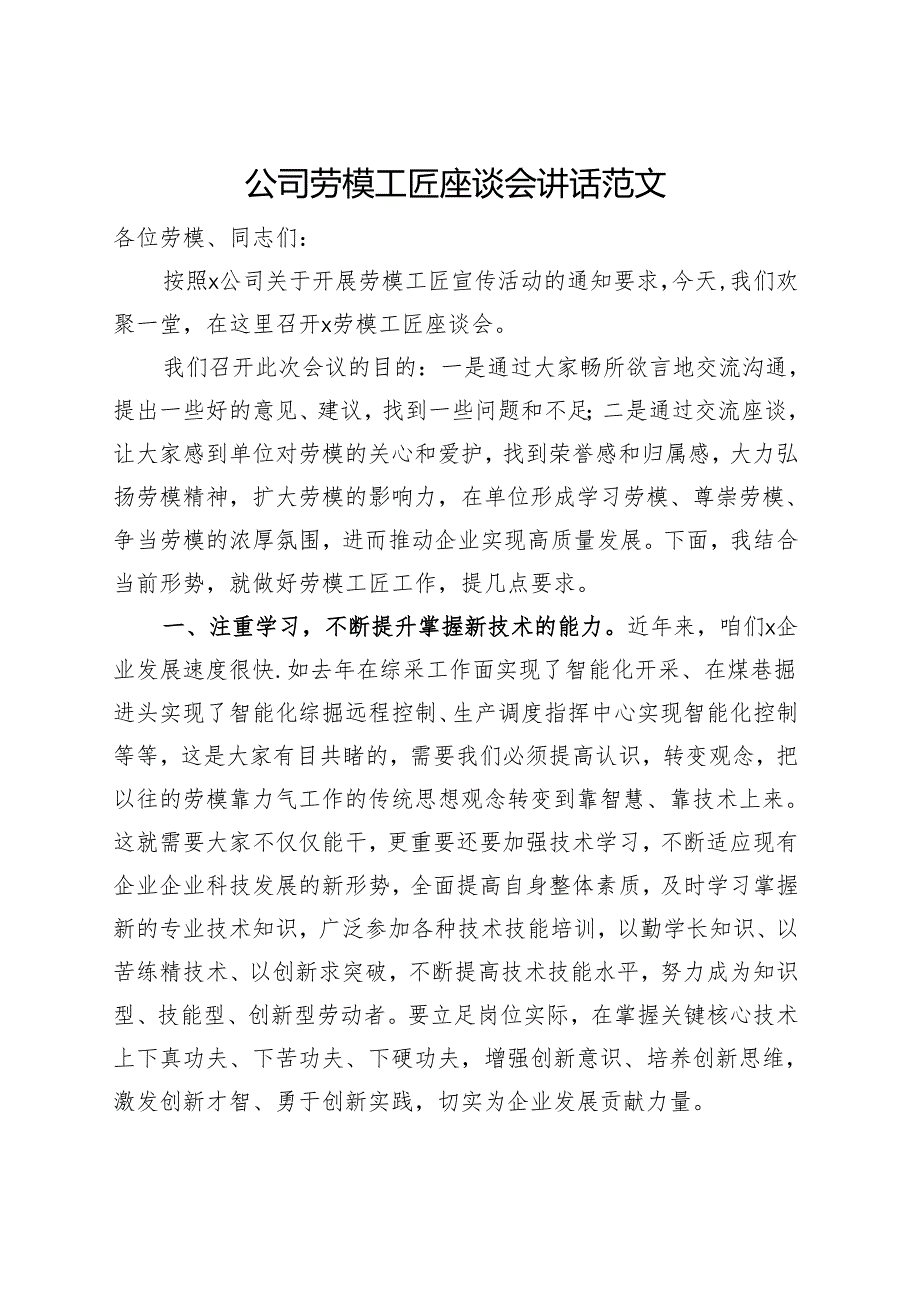 公司劳模工匠座谈会讲话范文
各位劳模、同志们：
按照x公司关于开展劳模工匠宣传活动的通知要求,今天,我们欢
聚一堂，在这里召开x劳模工匠座谈会。
我们召开此次会议的目的：一是通过大家畅所欲言地交流沟通，
提出一些好的意见、建议，找到一些问题和不足；二是通过交流座谈，
让大家感到单位对劳模的关心和爱护，找到荣誉感和归属感，大力弘
扬劳模精神，扩大劳模的影响力，在单位形成学习劳模、尊崇劳模、
争当劳模的浓厚氛围，进而推动企业实现高质量发展。下面，我结合
当前形势，就做好劳模工匠工作，提几点要求。
一、注重学习，不断提升掌握新技术的能力。近年来，咱们x企
业发展速度很快.如去年在综采工作面实现了智能化开采、在煤巷掘
进头实现了智能化综掘远程控制、生产调度指挥中心实现智能化控制
等等，这是大家有目共睹的，需要我们必须提高认识，转变观念，把
以往的劳模靠力气工作的传统思想观念转变到靠智慧、靠技术上来。
这就需要大家不仅仅能干，更重要还要加强技术学习，不断适应现有
企业企业科技发展的新形势，全面提高自身整体素质，及时学习掌握
新的专业技术知识，广泛参加各种技术技能培训，以勤学长知识、以
苦练精技术、以创新求突破，不断提高技术技能水平，努力成为知识
型、技能型、创新型劳动者。要立足岗位实际，在掌握关键核心技术
上下真功夫、下苦功夫、下硬功夫，增强创新意识、培养创新思维，
激发创新才智、勇于创新实践，切实为企业发展贡献力量。